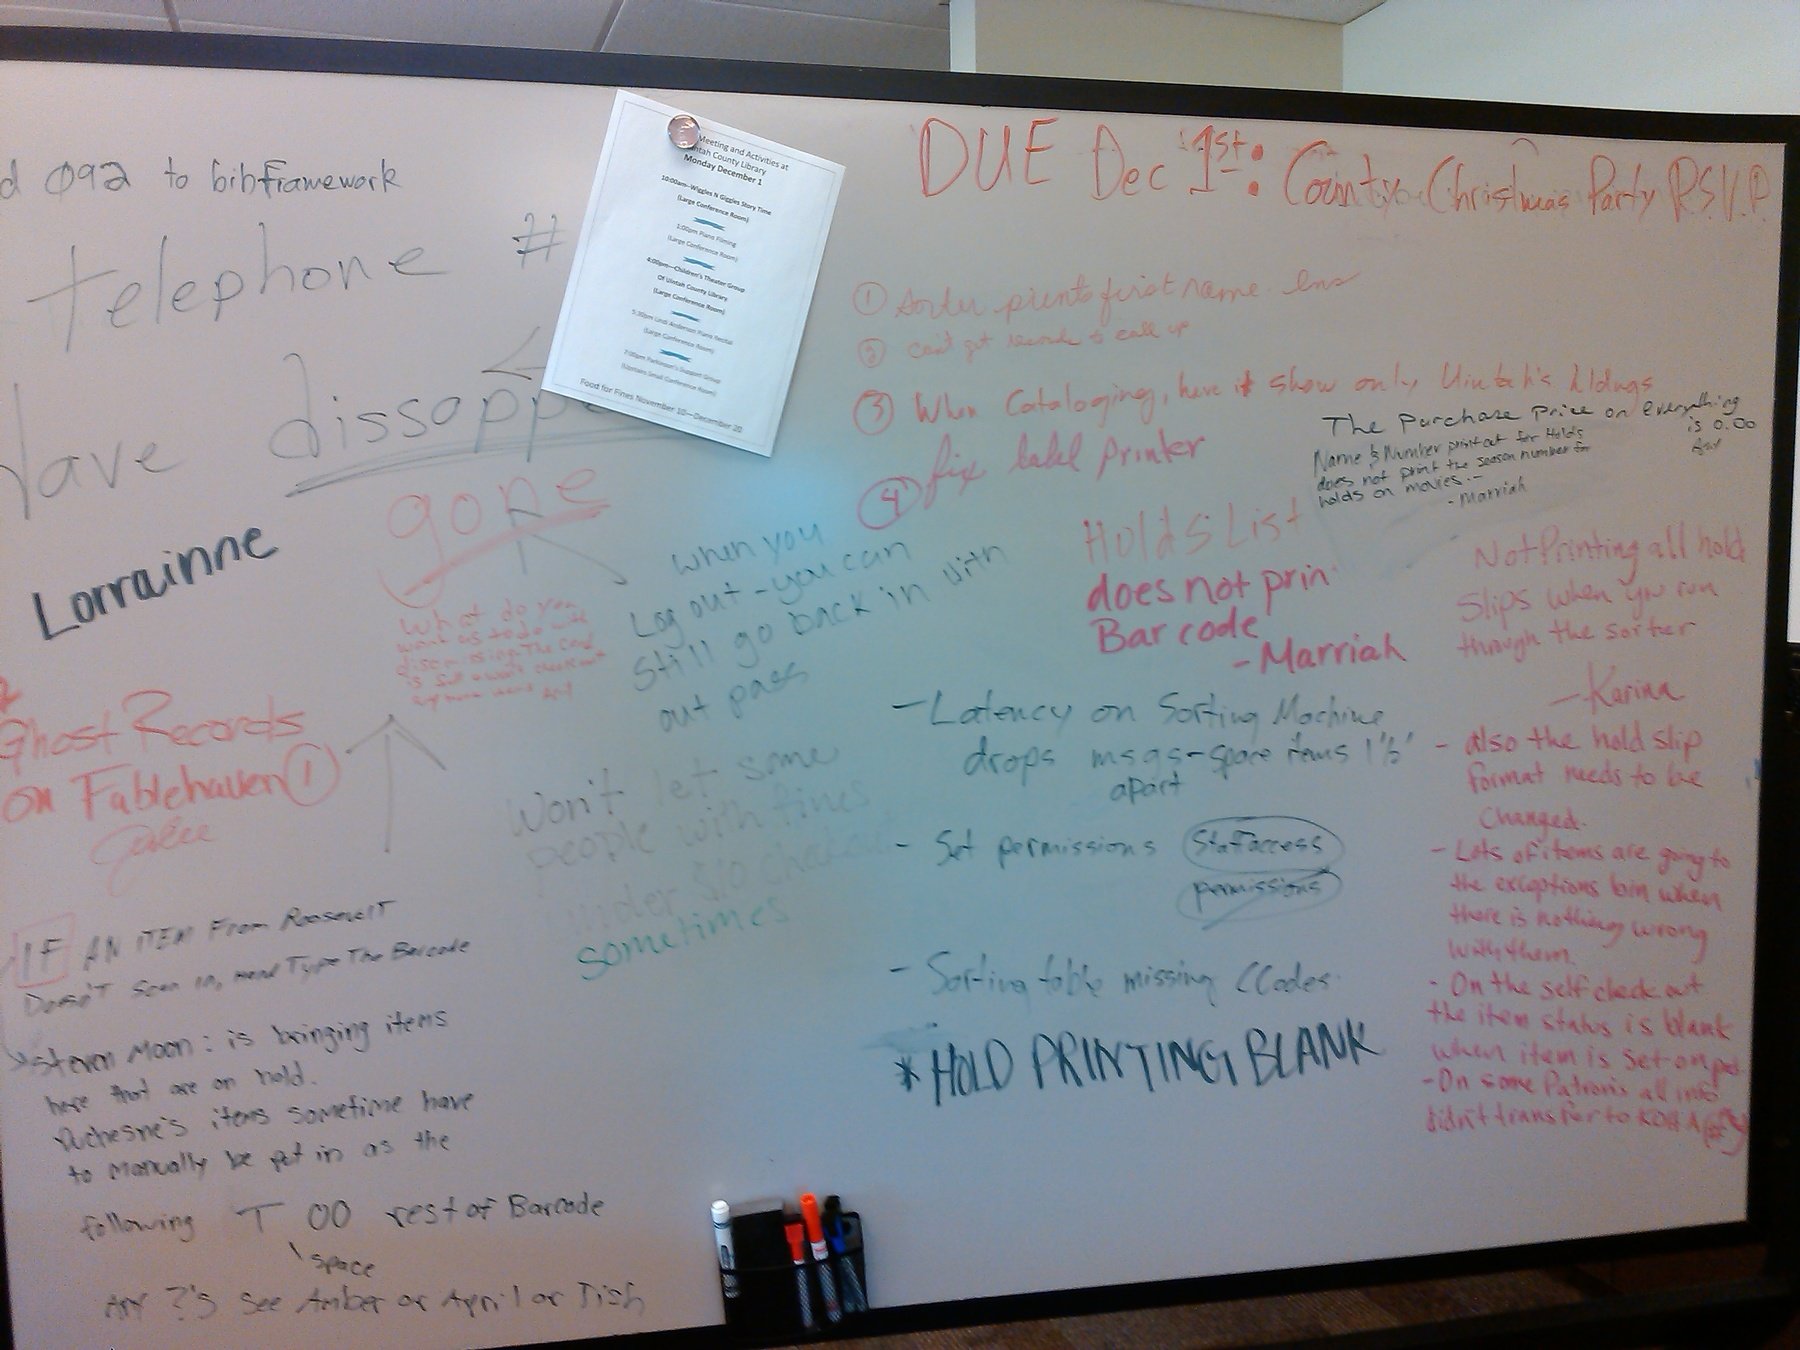 d 092 to bibframework
telephone #
have dissopp
gone
Lorrainne
What do you
want us to do with
disc missing. The card
is
Ghost Records
on Fablehaven ①
Jalee
IF AN ITEM From Roosevelt
Doesn't scan in, Type The Barcode
Steven Moon: is bringing items
here that are on hold.
Duchesne's items sometime have
to manually be put in as the
following T 00 rest of Barcode
space
Any ?'s see Amber or April or Tish
Meeting and Activities at
Uintah County Library
Monday December 1
10:00am--Wiggles N Giggles Story Time
(Large Conference Room)
1:00pm Piano Filming
(Large Conference Room)
4:00pm--Children's Theater Group
Of Uintah County Library
(Large Conference Room)
5:30pm Lindi Anderson Piano Recital
(Large Conference Room)
7:00pm Parkinson's Support Group
(Upstairs Small Conference Room)
Food for Fines November 10--December 20
When you
Log out - you can
still go back in with
out pass
Won't let some
people with fines
under $10 check
sometimes
DUE Dec 1st: County Christmas Party R.S.V.P.
① Sorter prints first name
② can't get records to call up
③ When Cataloging, have it show only Uintah's hldngs
④ fix label printer
The Purchase Price on everything
is 0.00
Name & Number print out for Holds
does not print the season number for
holds on movies. -
- Marriah
Holds List
does not prin
Barcode
- Marriah
Not Printing all hold
slips when you run
through the sorter
- Karina
- also the hold slip
format needs to be
changed.
- Lots of items are going to
the exceptions bin when
there is nothing wrong
with them.
- On the self check out
the item status is blank
when item is set on pad
- On some Patrons all info
didn't transfer to KOHA
- Latency on Sorting Machine
drops msgs - space items 1½'
apart
- Set permissions Staffaccess
permissions
- Sorting table missing CCodes.
* HOLD PRINTING BLANK